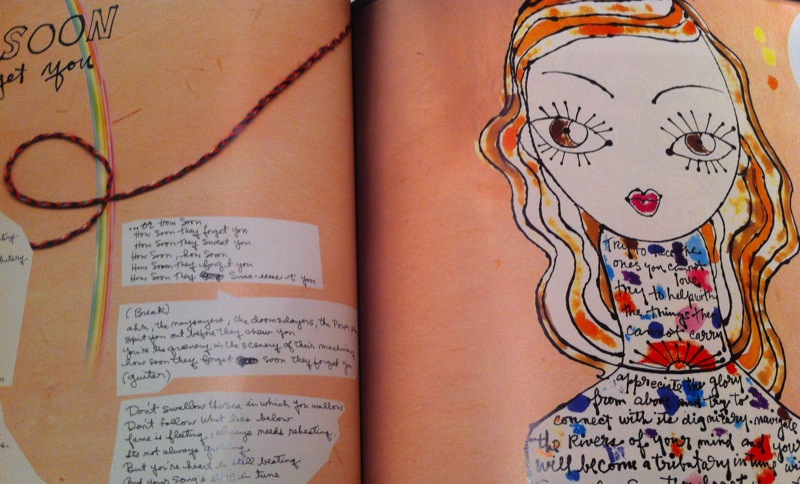 SOON
get you
... or How Soon
How Soon they forget you
How Soon They Sweat you
How Soon, how soon
How Soon they forget you
How Soon They Swea-eeae-t you
(Break)
ahh, the naysayers, the doomsdayers, the Power
spit you out before they chew you
You're the greenery in the scenery of their machinery
how soon they forget soon they forget you
(guitar)
Don't swallow the sea in which you wallow
Don't follow what lies below
fame is fleeting, always needs reheating.
It's not always
But you're heart is still beating
And your Song's still in tune
try to
the ones you cannot
love
try to help with
the things they
cannot carry
appreciate the glory
from above and try to
connect with its dignitary. navigate
the Rivers of your mind and you
will become a tributary in tune